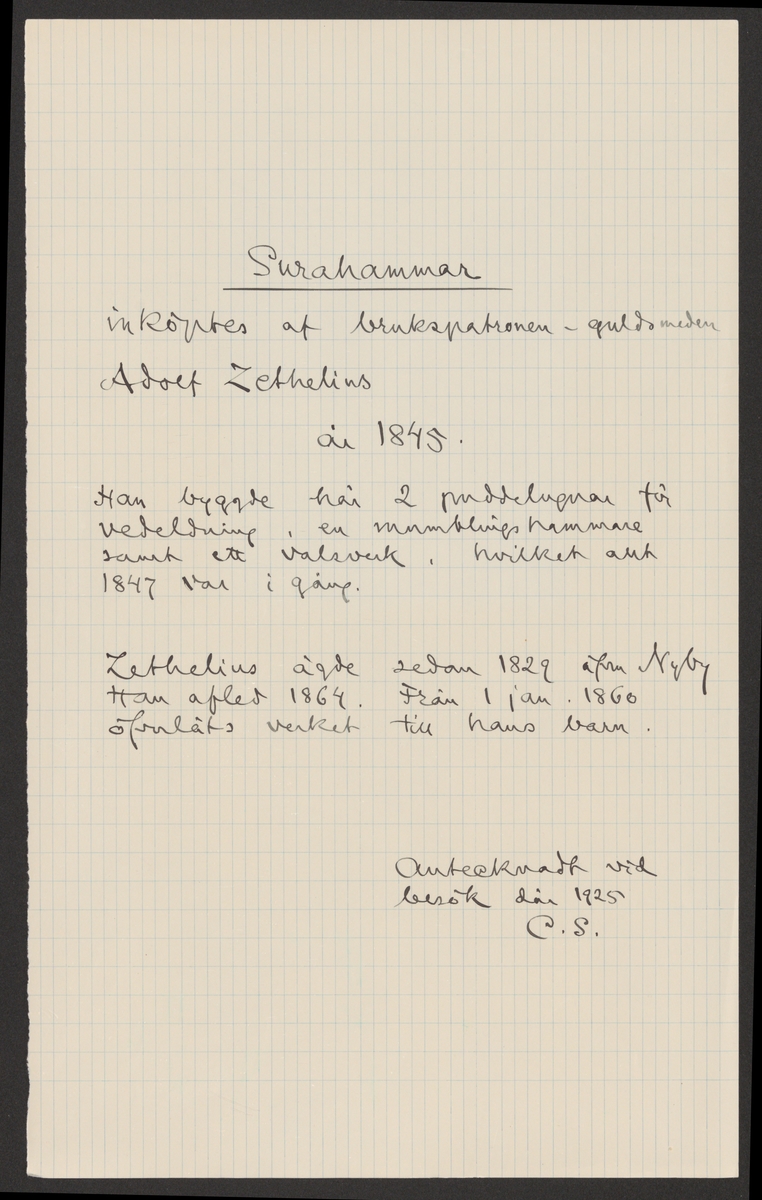 Surahammar
inköptes af brukspatronen - guldsmeden
Adolf Zethelius
år 1845.
Han byggde här 2 puddelugnar för
vedeldning, en mumblingshammare
samt ett valsverk, hvilket allt
1847 var i gång.
Zethelius ägde sedan 1829 äfvn Nyby
Han afled 1864. Från 1 jan. 1860
öfverläts verket till hans barn.
Antecknadt vid
besök där 1925
C.S.